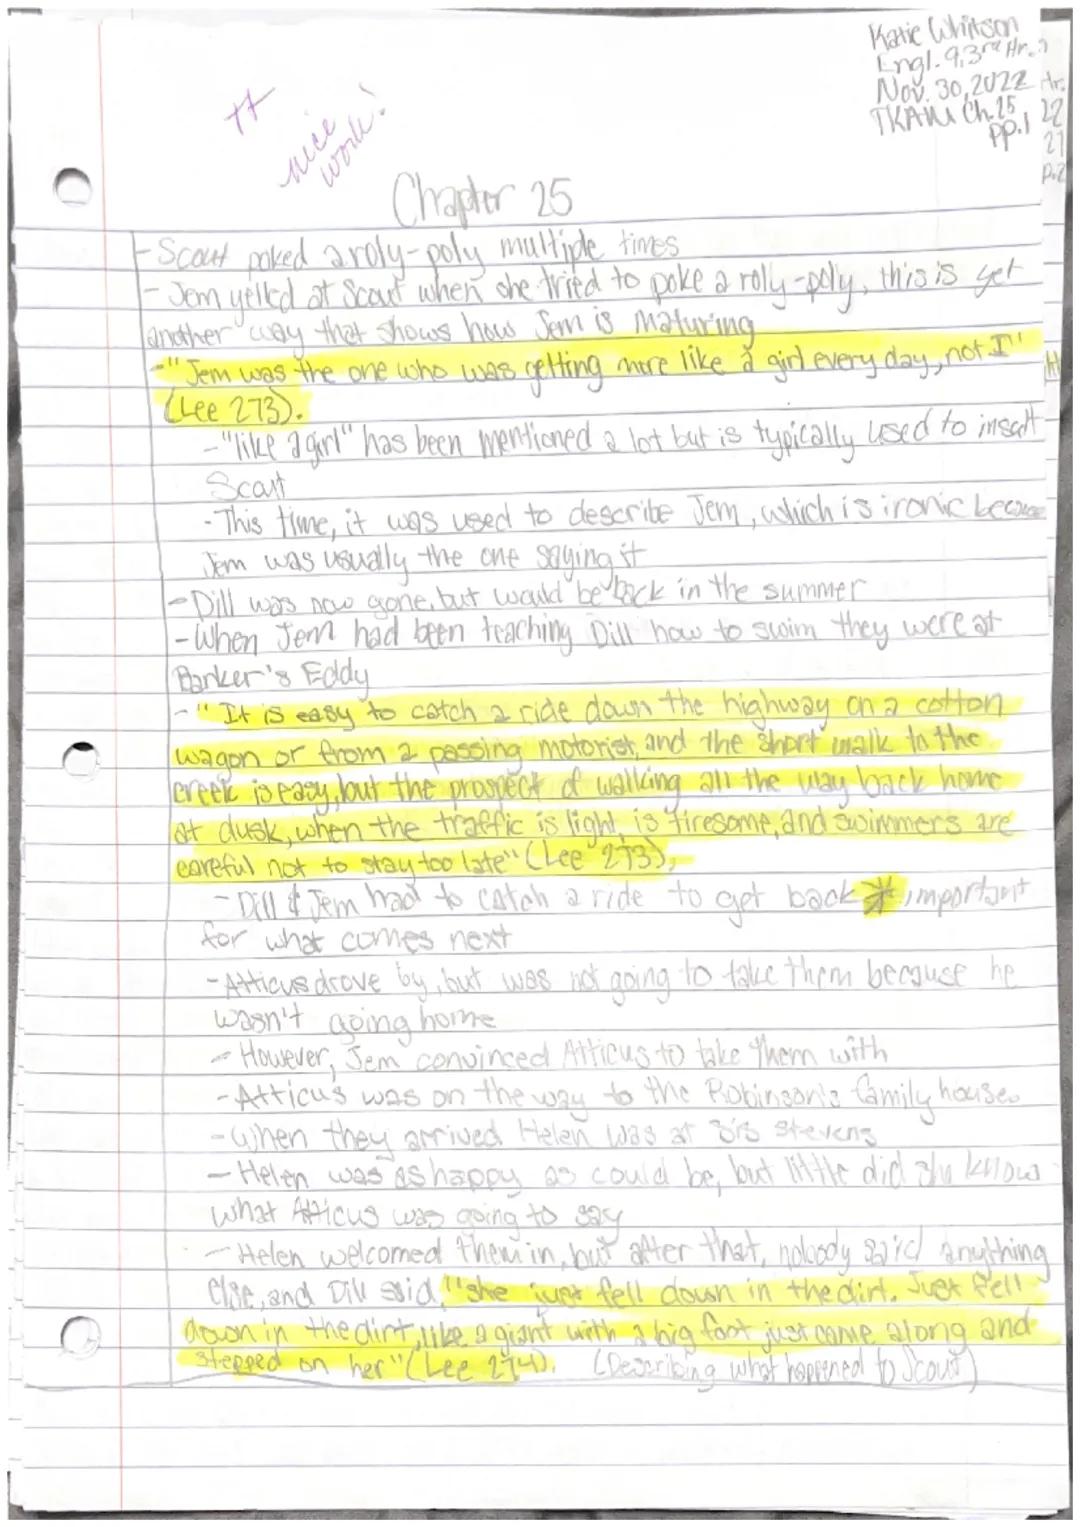 Katie Whitson
Engl. 9, 3rd Hr.
Nov. 30, 2022
TKAM Ch. 25
pp. 1
Hr.
22
21
p. 2
nice
work!
Chapter 25
- Scout poked a roly-poly multiple times
- Jem yelled at Scout when she tried to poke a rolly-poly, this is yet
another way that shows how Jem is maturing
- "Jem was the one who was getting more like a girl every day, not I"
(Lee 273).
- "like a girl" has been mentioned a lot but is typically used to insult
Scout
- This time, it was used to describe Jem, which is ironic because
Jem was usually the one saying it
- Dill was now gone, but would be back in the summer
- When Jem had been teaching Dill how to swim they were at
Barker's Eddy
- "It is easy to catch a ride down the highway on a cotton
wagon or from a passing motorist, and the short walk to the
creek is easy, but the prospect of walking all the way back home
at dusk, when the traffic is light, is tiresome, and swimmers are
careful not to stay too late" (Lee 273).
- Dill & Jem had to catch a ride to get back * important
for what comes next
- Atticus drove by, but was not going to take them because he
wasn't going home
- However, Jem convinced Atticus to take them with
- Atticus was on the way to the Robinson's family house
- When they arrived Helen was at Sis Stevens
- Helen was as happy as could be, but little did she know
what Atticus was going to say
- Helen welcomed them in, but after that, nobody said anything
else, and Dill said, "she just fell down in the dirt. Just fell
down in the dirt, like a giant with a big foot just came along and
stepped on her" (Lee 274). (Describing what happened to Scout)